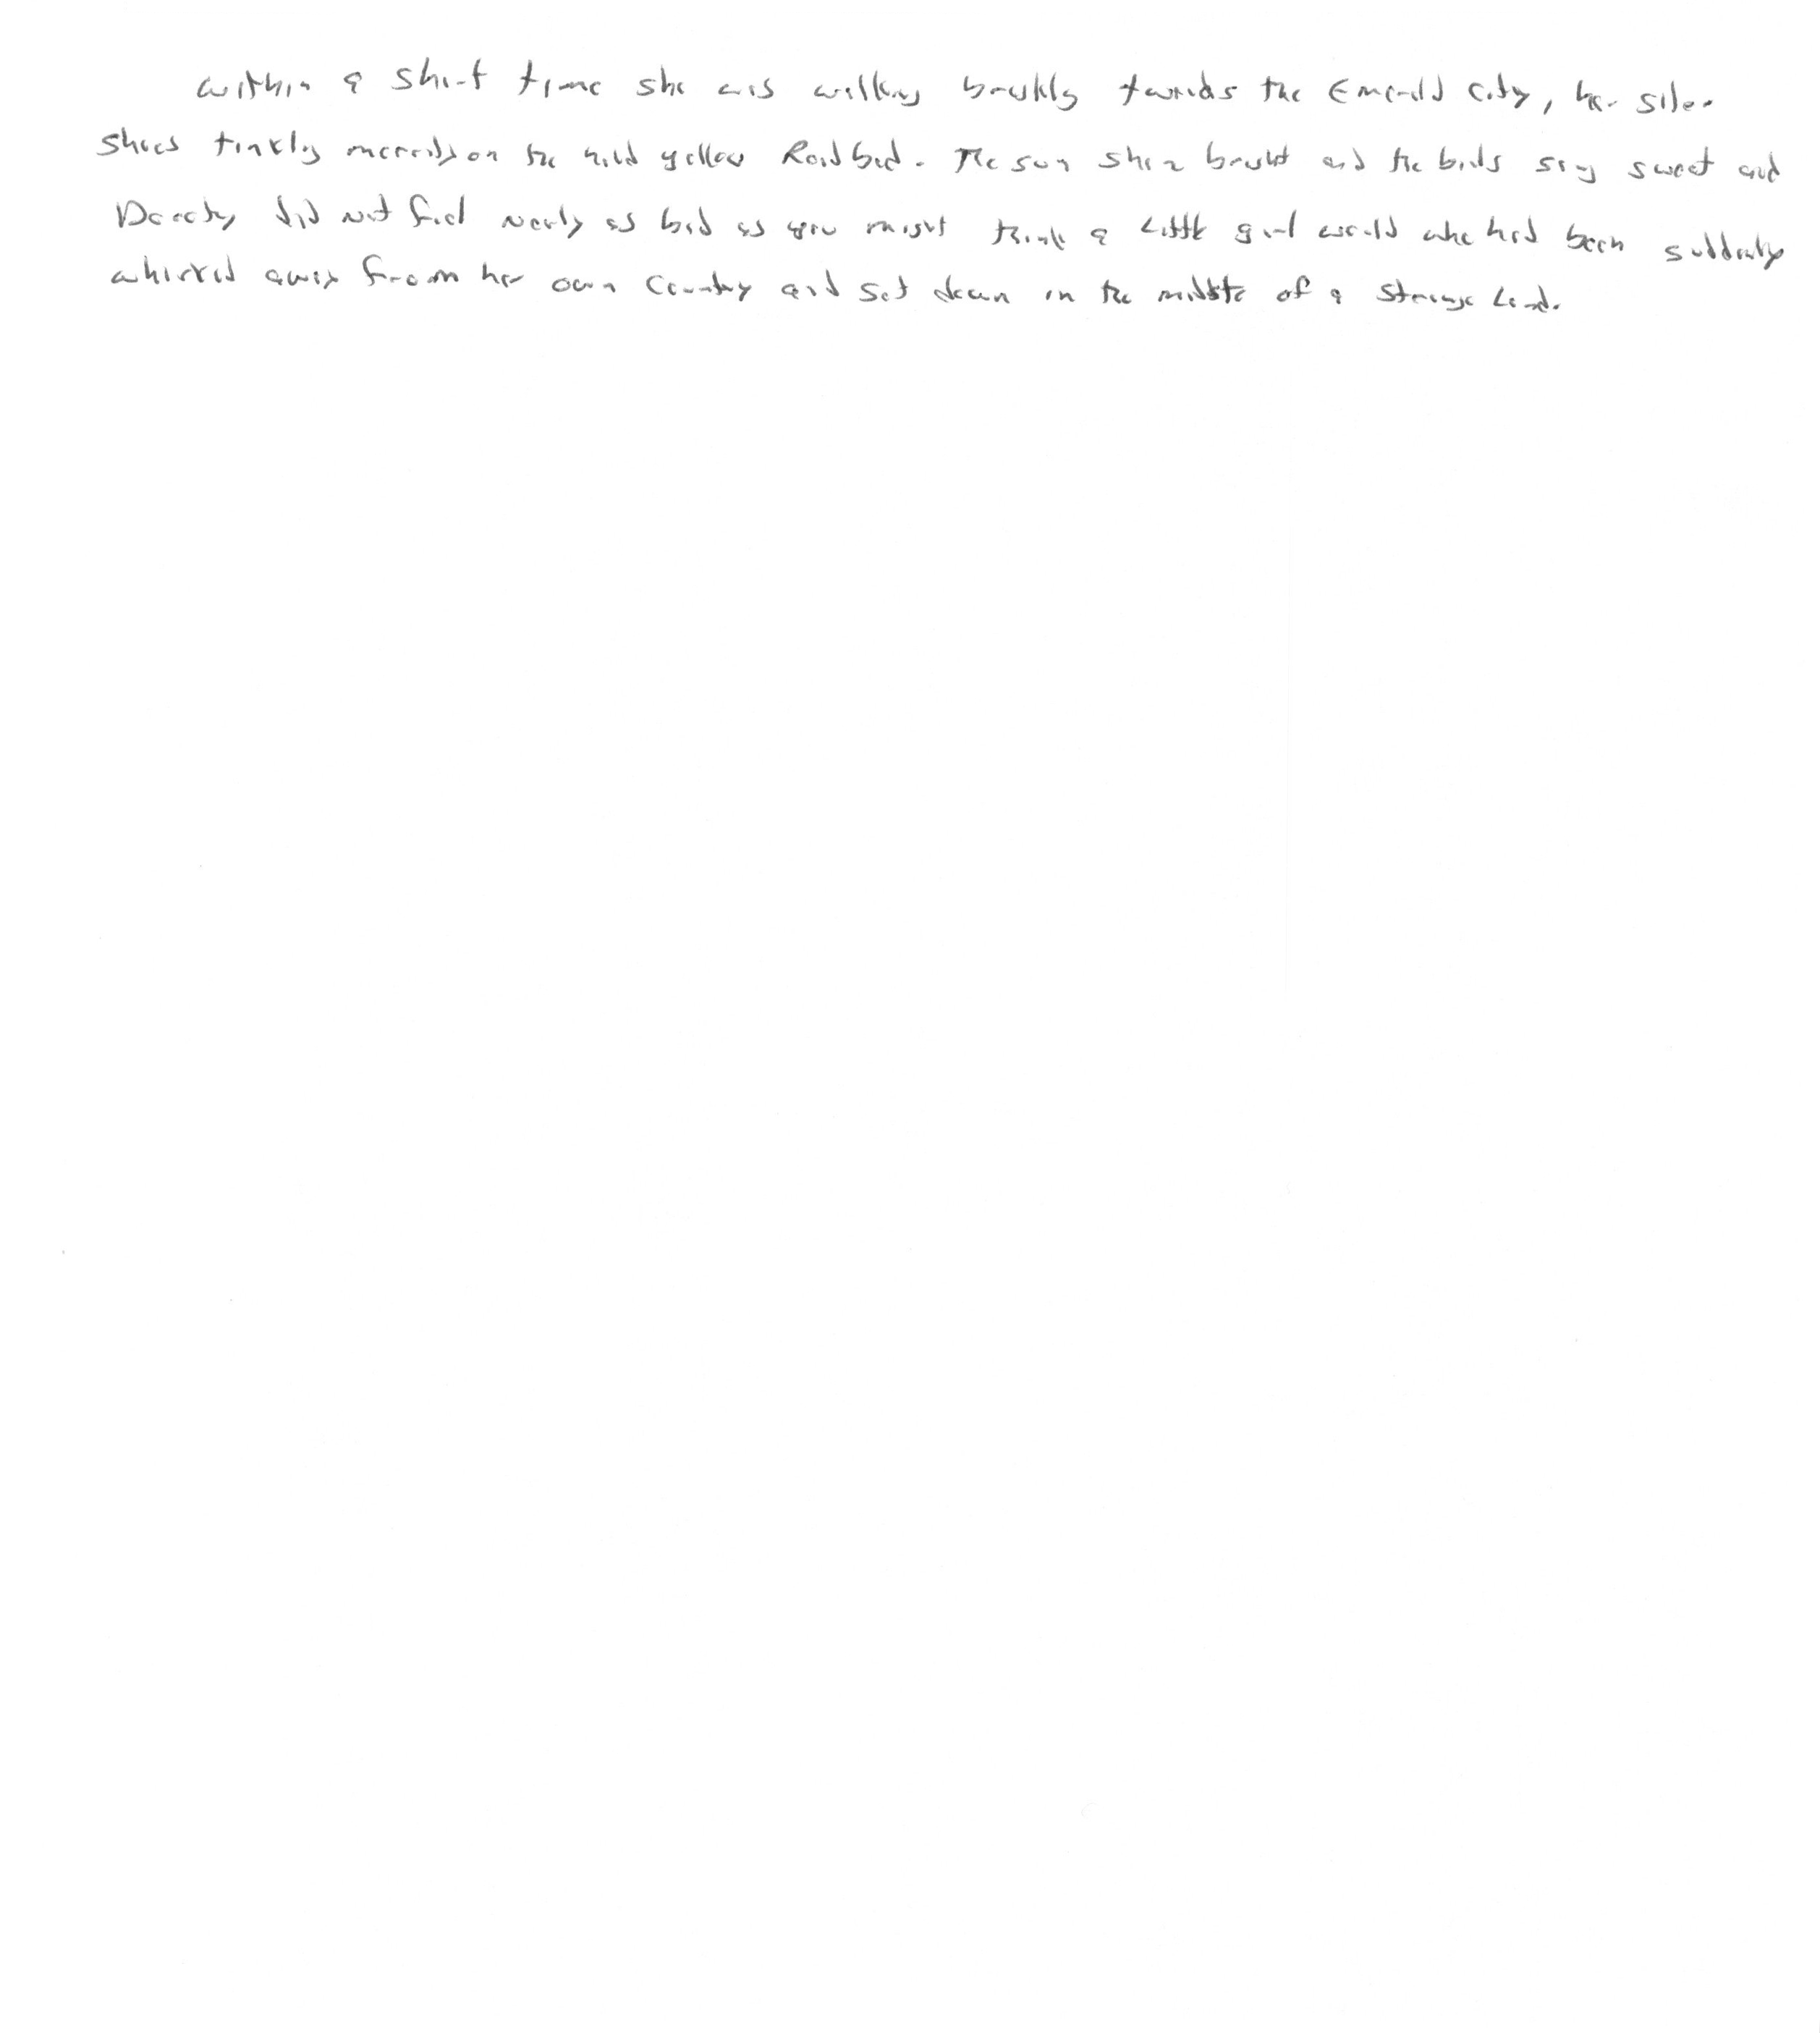 Within a short time she was walking briskly towards the Emerald City, her silver
shoes tinkling merrily on the hard yellow Roadbed. The sun shone bright and the birds sang sweet and
Dorothy did not feel nearly as bad as you might think a Little girl would who had been suddenly
whisked away from her own Country and set down in the middle of a strange Land.